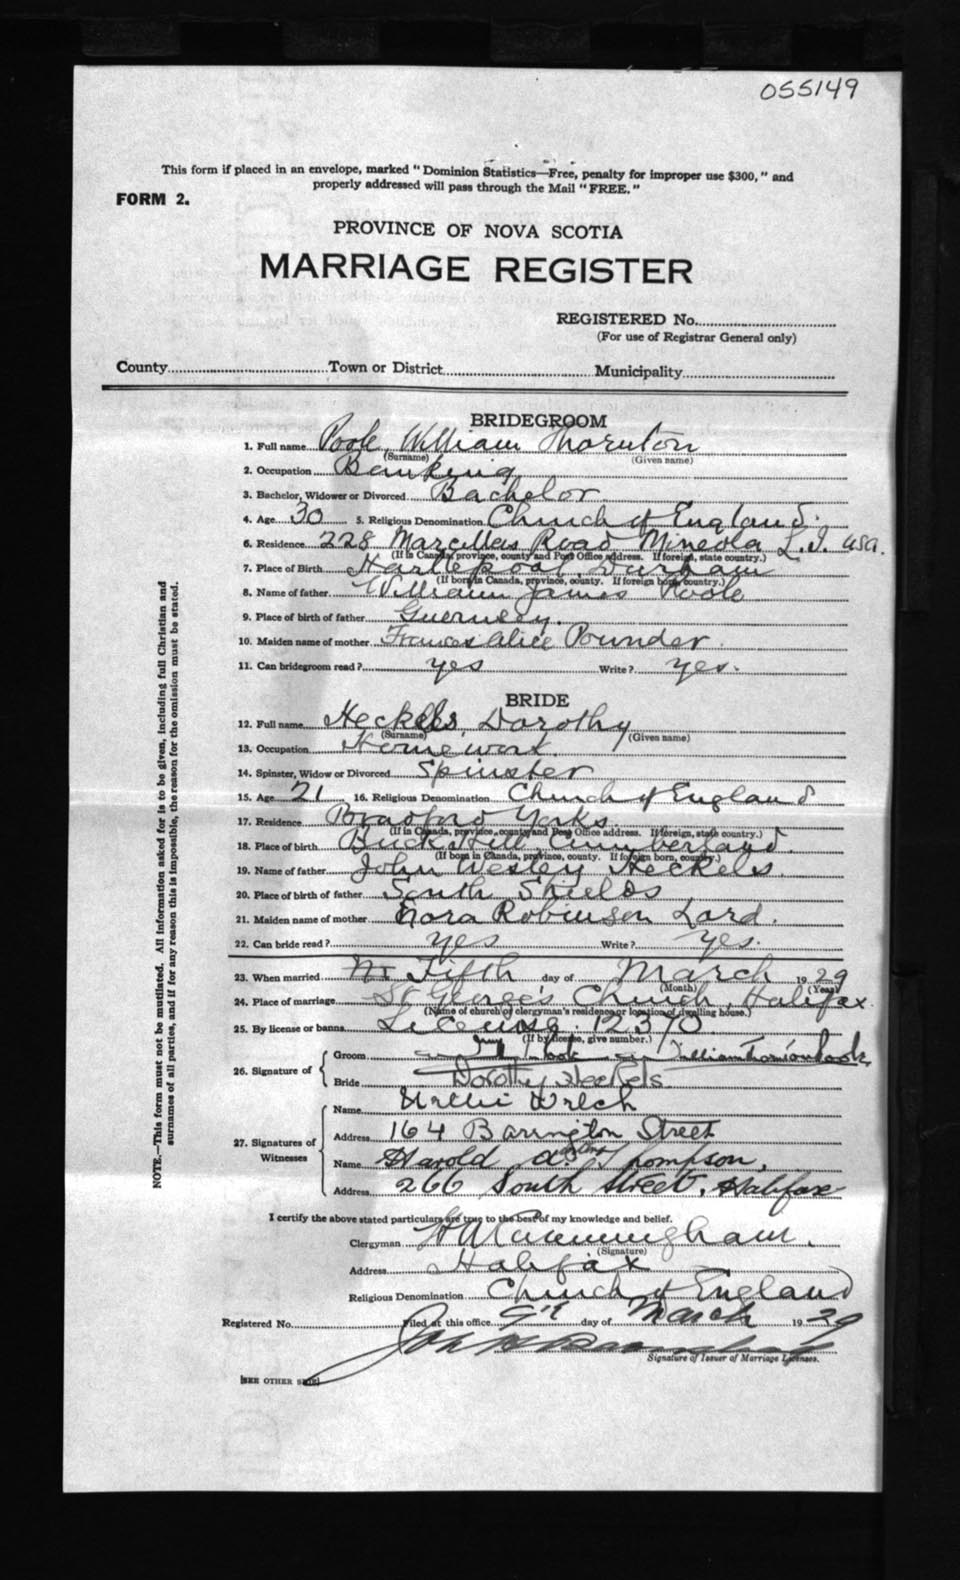 055149
This form if placed in an envelope, marked "Dominion Statistics—Free, penalty for improper use $300," and
properly addressed will pass through the Mail "FREE."
FORM 2.
PROVINCE OF NOVA SCOTIA
MARRIAGE REGISTER
REGISTERED No.
(For use of Registrar General only)
County Town or District Municipality
BRIDEGROOM
1. Full name Poole, William Thornton
(Surname) (Given name)
2. Occupation Banking
3. Bachelor, Widower or Divorced Bachelor
4. Age 30 5. Religious Denomination Church of England.
6. Residence 228 Marcellus Road Mineola L.I. USA.
(If in Canada, province, county and Post Office address. If foreign, state country.)
7. Place of Birth Hartlepool Durham
(If born in Canada, province, county. If foreign born, country.)
8. Name of father William James Poole
9. Place of birth of father Guernsey.
10. Maiden name of mother Frances Alice Pounder
11. Can bridegroom read? yes Write? yes.
BRIDE
12. Full name Heckels, Dorothy
(Surname) (Given name)
13. Occupation Home work
14. Spinster, Widow or Divorced Spinster
15. Age 21 16. Religious Denomination Church of England
17. Residence Bradford Yorks.
(If in Canada, province, county and Post Office address. If foreign, state country.)
18. Place of birth Buck Hill, Cumberland.
(If born in Canada, province, county. If foreign born, country.)
19. Name of father John Wesley Heckels.
20. Place of birth of father South Shields
21. Maiden name of mother Nora Robinson Lard.
22. Can bride read? yes Write? yes.
23. When married Fifth day of March 1929
(Month) (Year)
24. Place of marriage St George's Church, Halifax.
(Name of church or clergyman's residence or location of dwelling house.)
25. By license or banns License. 12370
(If by license, give number.)
26. Signature of { Groom William Thornton Poole
Bride Dorothy Heckels
27. Signatures of Witnesses { Name Nellie Welch
Address 164 Barington Street
Name Harold Thompson,
Address 266 South Street, Halifax
I certify the above stated particulars are true to the best of my knowledge and belief.
Clergyman Cunningham.
(Signature)
Address Halifax
Religious Denomination Church of England
Registered No. Filed at this office 9th day of March 1929
Signature of Issuer of Marriage Licenses.
[SEE OTHER SIDE]
NOTE.—This form must not be mutilated. All information asked for is to be given, including full Christian and
surnames of all parties, and if for any reason this is impossible, the reason for the omission must be stated.